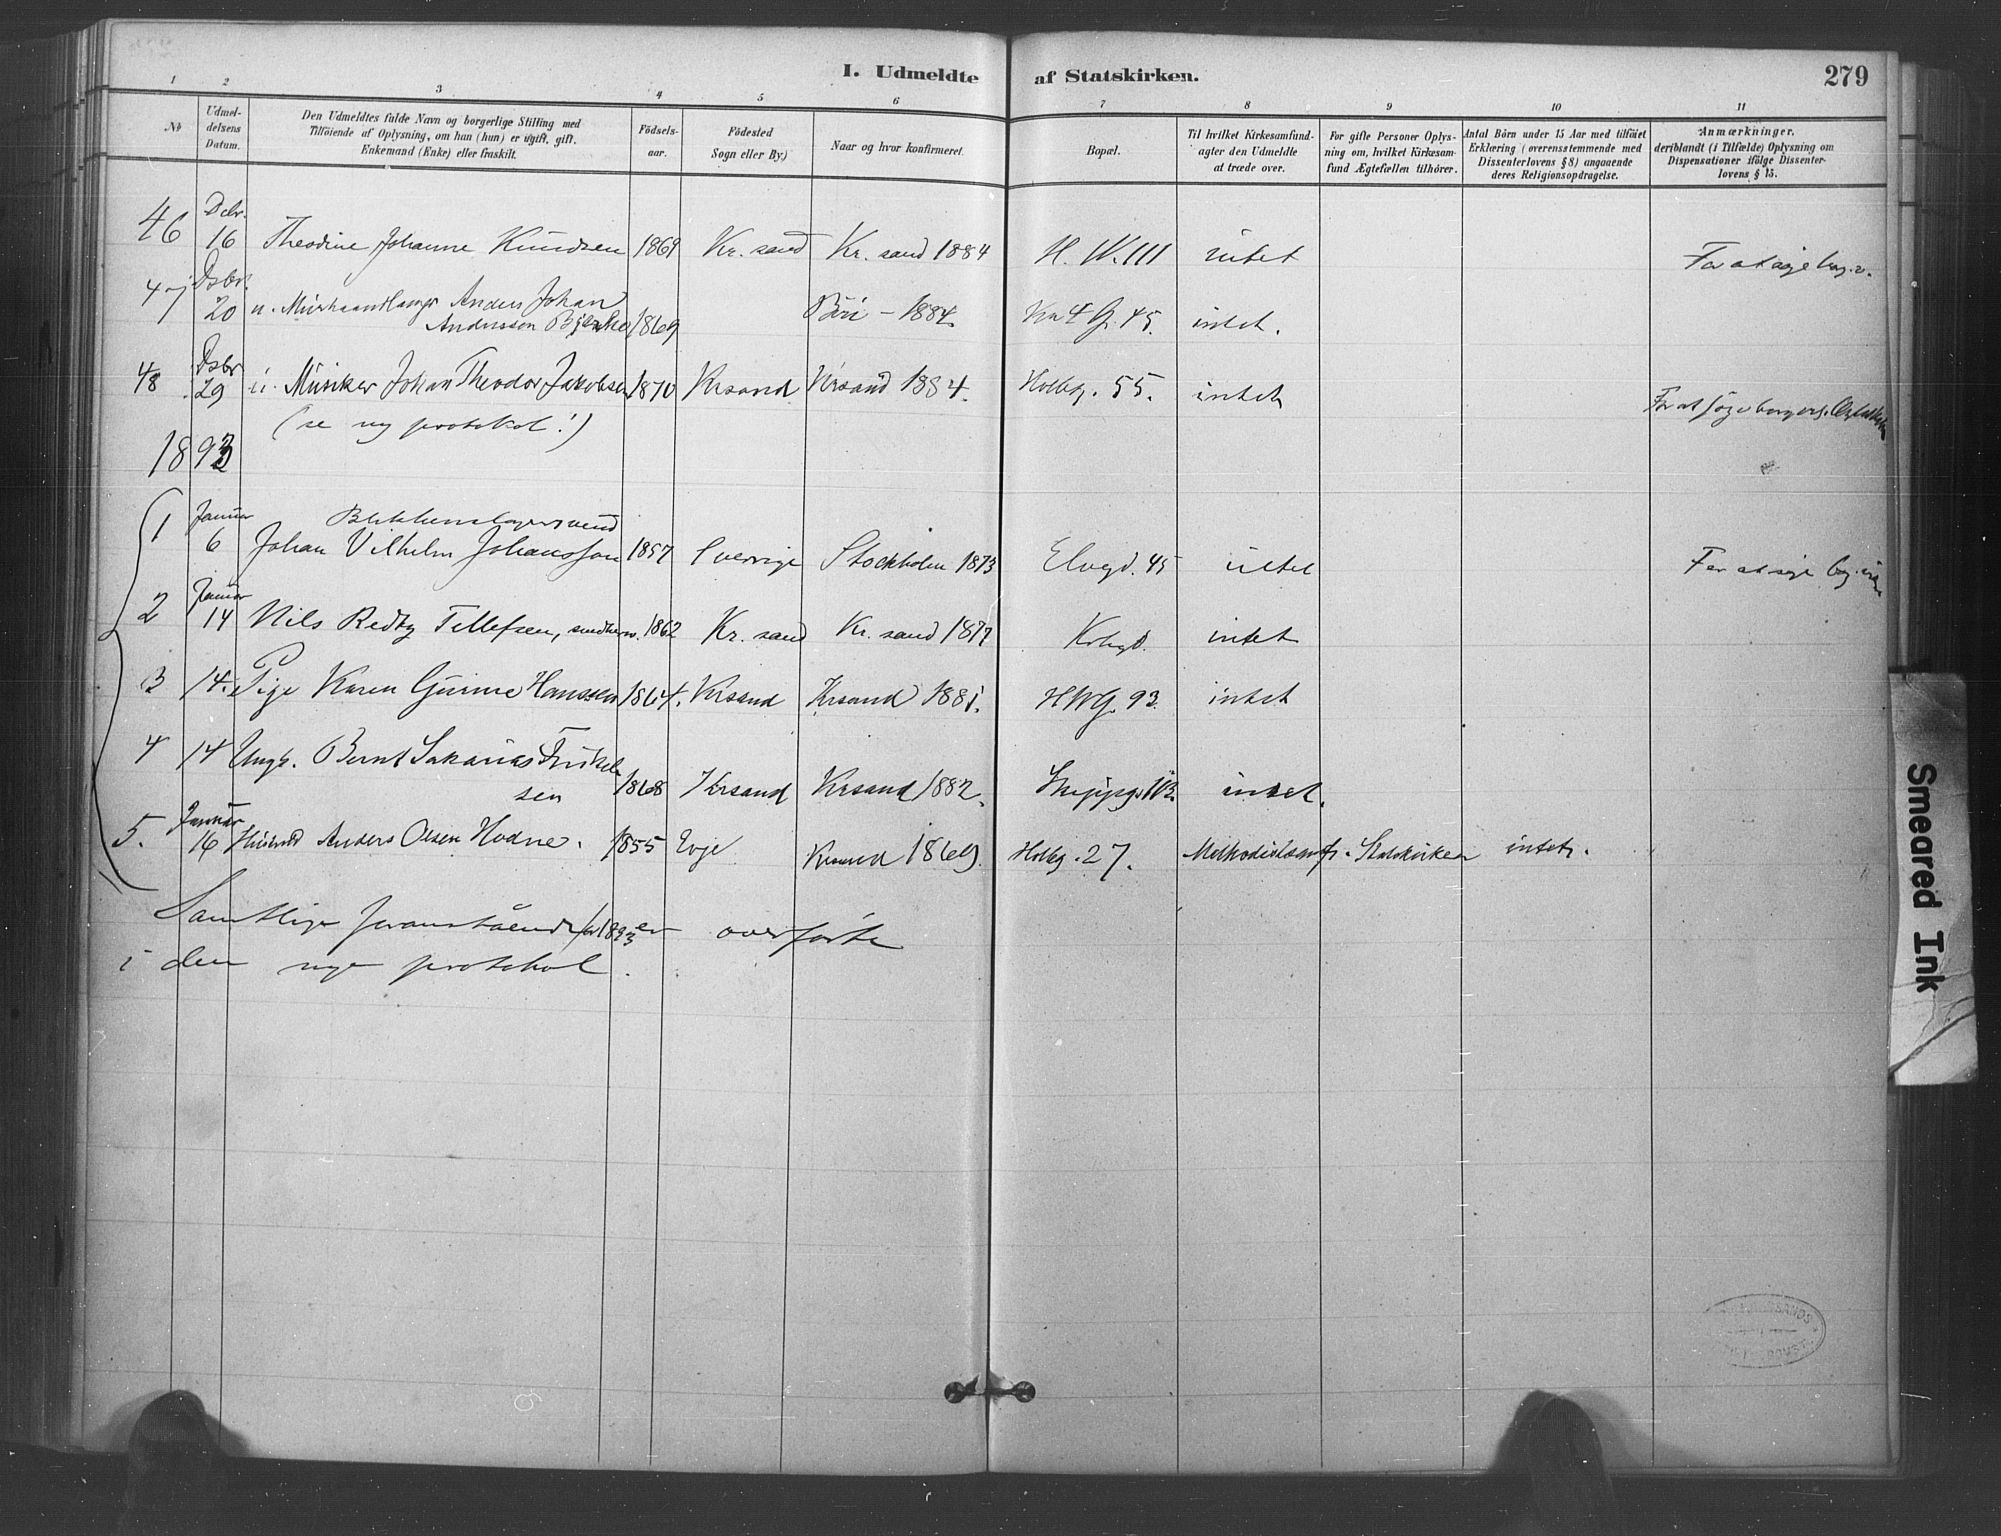 I. Udmeldte af Statskirken.
279
1 2 3 4 5 6 7 8 9 10 11
No
Udmel-
delsens
Datum.
Den Udmeldtes fulde Navn og borgerlige Stilling med
Tilføiende af Oplysning, om han (hun) er ugift, gift,
Enkemand (Enke) eller fraskilt.
Fødsels-
aar.
Fødested
Sogn eller By.)
Naar og hvor konfirmeret.
Bopæl.
Til hvilket Kirkesamfund-
agter den Udmeldte
at træde over.
For gifte Personer Oplys-
ning om, hvilket Kirkesam-
fund Ægtefællen tilhører.
Antal Børn under 15 Aar med tilføiet
Erklæring (overensstemmende med
Dissenterlovens § 8) angaaende
deres Religionsopdragelse.
Anmærkninger,
deriblandt (i Tilfælde) Oplysning om
Dispensationer ifølge Dissenter-
lovens § 15.
46 Dcbr. 16 Theodine Johanne Knudsen 1869 Kr. sand Kr. sand 1884 H. W. 111 intet For at søge borg. v.
47 Dsbr. 20 u. Murhaandlanger Anders Johan
Andersson 1869 – 1884. 45. intet.
48 Dsbr 29 u. Musiker Johan Theodor Jakobsen 1870 Krsand Krsand 1884. Holbg. 55. intet For at søge borgerl.
(se ny protokol!)
1893
Blikkenslagersvend
1 Januar 6 Johan Vilhelm Johansson 1857 Sverrige Stockholm 1873 Elvegd. 45 intet For at søge borg.
2 Januar 14 Nils Redby Tellefsen, 1862 Kr. sand Kr. sand 1877 intet
3 14. Pige Karen Gurine Hanssen 1864. Krsand Krsand 1881. HWG. 93. intet
4 14 Ungk. Bernt Sakarias
sen 1868 Krsand Krsand 1882. intet.
5. Januar 16 Anders Olsen Hodne. 1855 Evje Krsand 1869. Holbg. 27. Methodistsamf. Statskirken intet.
Samtlige foranstående for 1893 er overførte
i den nye protokol.
Smeared Ink